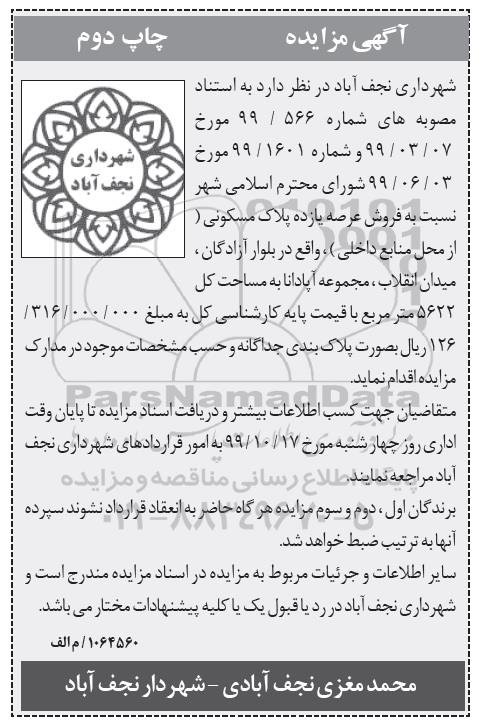 آگهی مزایده
چاپ دوم
شهرداری نجف آباد
شهرداری نجف آباد در نظر دارد به استناد
مصوبه های شماره ۵۶۶ / ۹۹ مورخ
۰۷ / ۰۳ / ۹۹ و شماره ۱۶۰۱ / ۹۹ مورخ
۰۳ / ۰۶ / ۹۹ شورای محترم اسلامی شهر
نسبت به فروش عرصه یازده پلاک مسکونی (
از محل منابع داخلی ) ، واقع در بلوار آزادگان ،
میدان انقلاب ، مجموعه آپادانا به مساحت کل
۵۶۲۲ متر مربع با قیمت پایه کارشناسی کل به مبلغ ۰۰۰ / ۰۰۰ / ۳۱۶ /
۱۲۶ ریال بصورت پلاک بندی جداگانه و حسب مشخصات موجود در مدارک
مزایده اقدام نماید.
متقاضیان جهت کسب اطلاعات بیشتر و دریافت اسناد مزایده تا پایان وقت
اداری روز چهار شنبه مورخ ۱۷ / ۱۰ / ۹۹ به امور قراردادهای شهرداری نجف
آباد مراجعه نمایند.
برندگان اول ، دوم و سوم مزایده هر گاه حاضر به انعقاد قرارداد نشوند سپرده
آنها به ترتیب ضبط خواهد شد.
سایر اطلاعات و جزئیات مربوط به مزایده در اسناد مزایده مندرج است و
شهرداری نجف آباد در رد یا قبول یک یا کلیه پیشنهادات مختار می باشد.
۱۰۶۴۵۶۰ / م الف
محمد مغزی نجف آبادی – شهردار نجف آباد
ParsNamadData
پایگاه اطلاع رسانی مناقصه و مزایده
۰۲۱-۸۸۳۴۹۶۷۰-۵